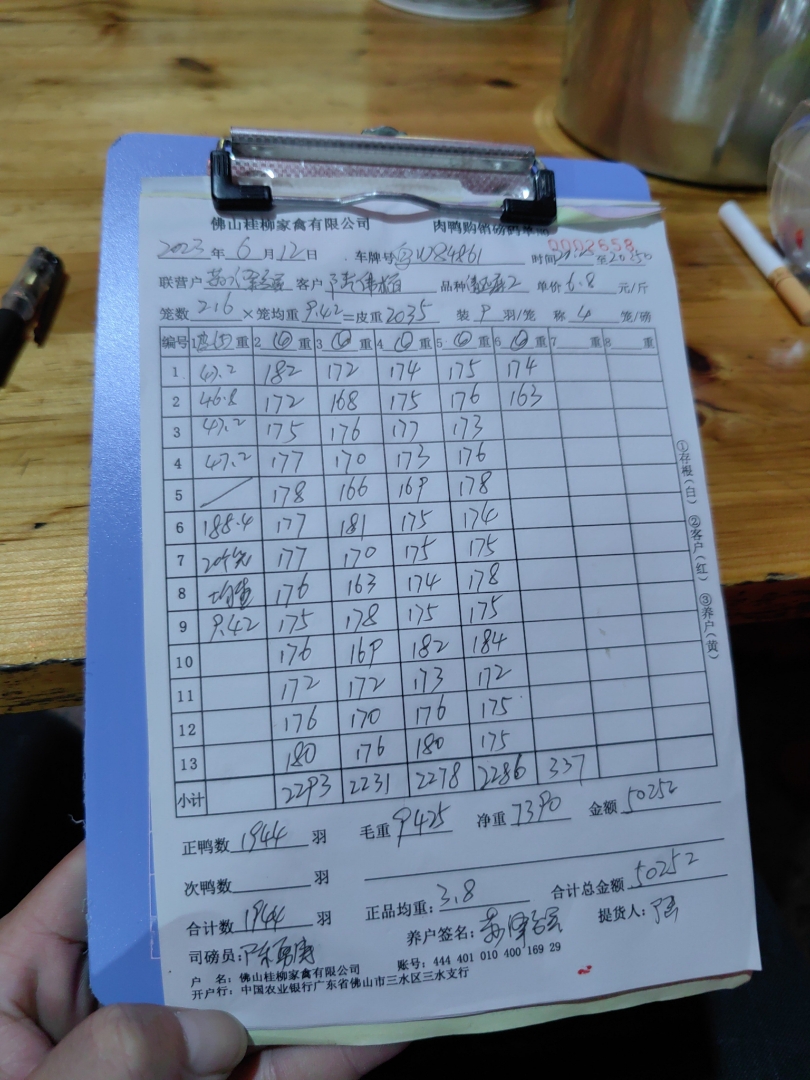 佛山桂柳家禽有限公司 肉鸭购销磅码单
0002658
2023 年 6 月 12 日 车牌号 W84861 时间 至 20:50
联营户 客户 品种 2 单价 6.8 元/斤
笼数 216 × 笼均重 9.42 = 皮重 2035 装 9 羽/笼 称 4 笼/磅
编号 1 重 2 重 3 重 4 重 5 重 6 重 7 重 8 重
1 47.2 182 172 174 175 174
2 46.8 172 168 175 176 163
3 47.2 175 176 177 173
4 47.2 177 170 173 176
5 178 166 169 178
6 188.4 177 181 175 174
7 177 170 175 175
8 均重 176 163 174 178
9 9.42 175 178 175 175
10 176 169 182 184
11 172 172 173 172
12 176 170 176 175
13 180 176 180 175
小计 2293 2231 2278 2286 337
正鸭数 1944 羽 毛重 9425 净重 7390 金额 50252
次鸭数 羽
合计数 1944 羽 正品均重: 3.8 合计总金额 50252
司磅员: 养户签名: 提货人:
户 名: 佛山桂柳家禽有限公司 账号: 444 401 010 400 169 29
开户行: 中国农业银行广东省佛山市三水区三水支行
①存根(白) ②客户(红) ③养户(黄)